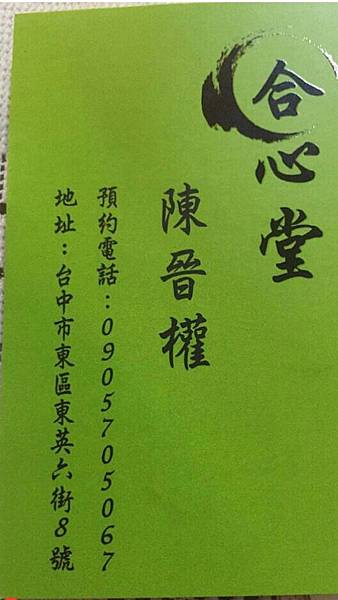 合心堂
陳晉權
預約電話：0905705067
地址：台中市東區東英六街8號